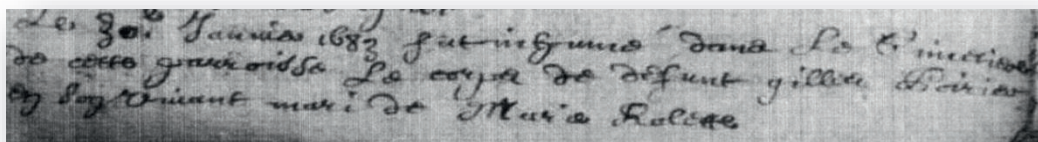 Le 30.e Januie 1683 fut inhumé dans Le Cimetiere
de cette parroisse Le corps de defunt gilles Poirier
en son vivant mari de Marie